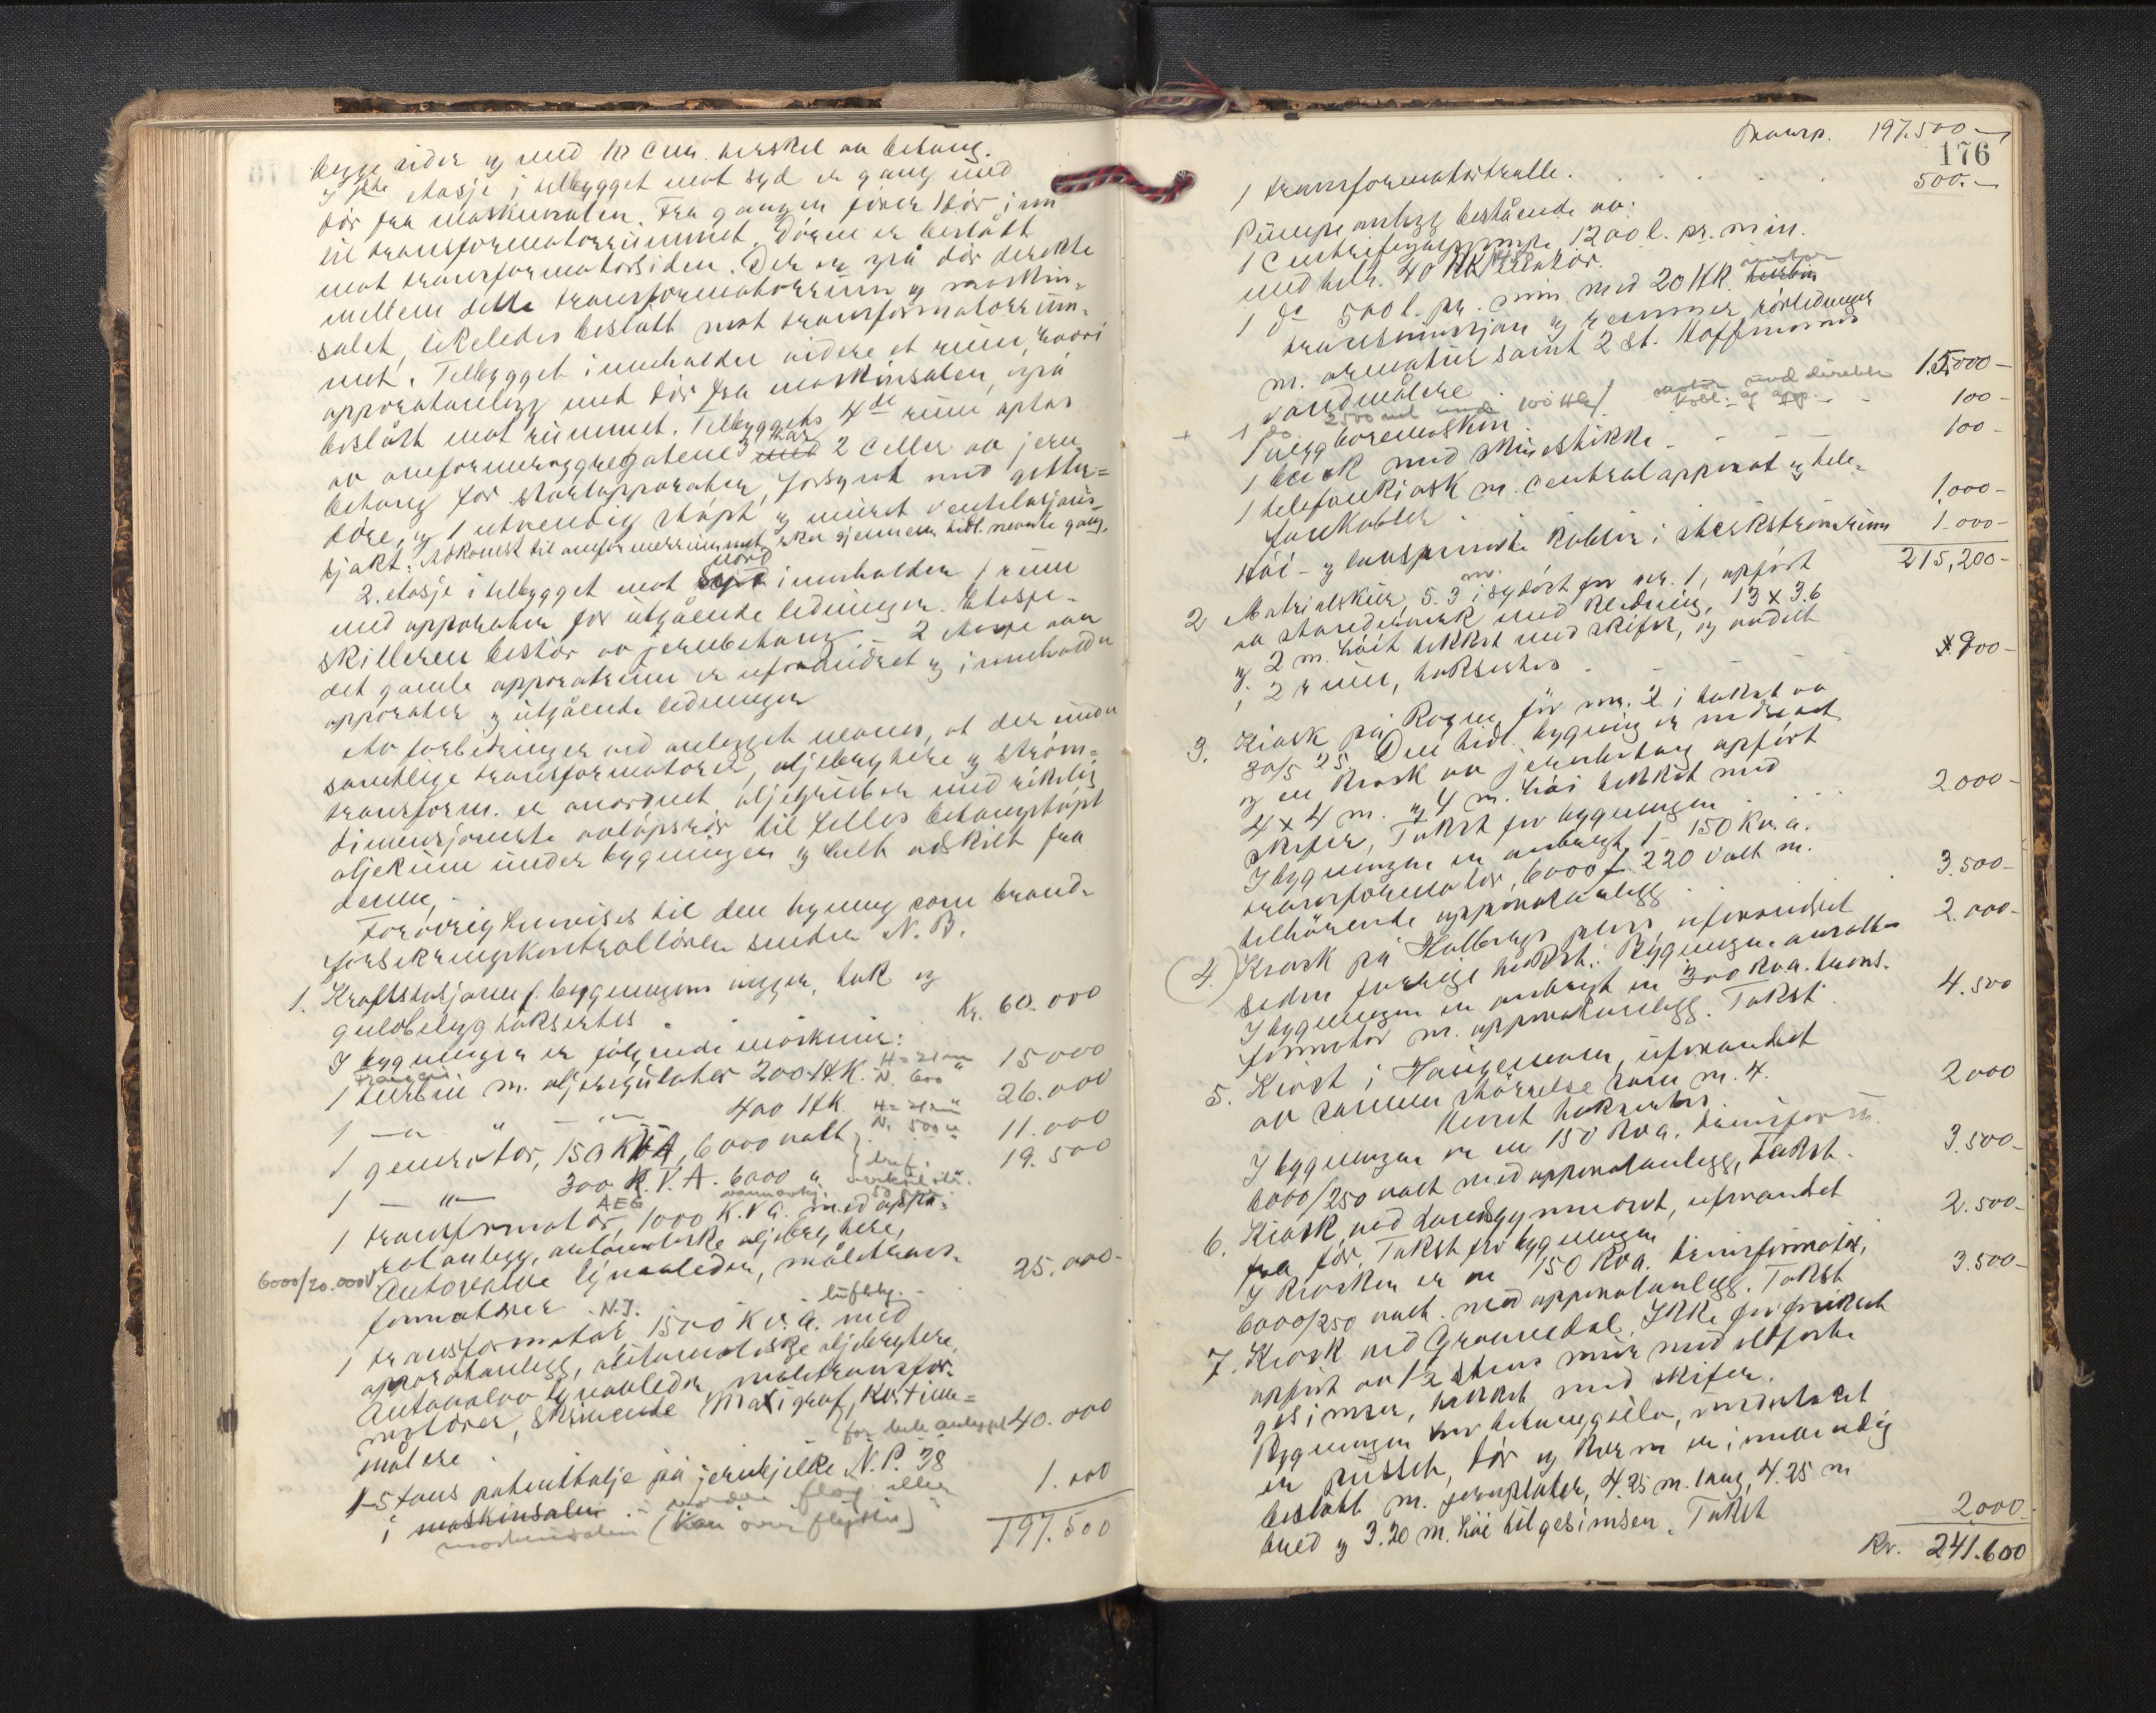 begge sider og med 10 cm. hvelvet av betong.
I 1ste etasje i tilbygget mot syd er gang med
dör fra maskinsalen. Fra gangen förer 1 dör inn
til transformatorrummet. Dören er beslått
mot transformatorsiden. Der er også dör direkte
mellem dette transformatorrum og maskin-
salet, likeledes beslått mot transformatorrum-
met. Tilbygget inneholder videre et rum, hvori
apparatanlegg med dör fra maskinsalen, også
beslått mot rummet. Tilbyggets 4de rum optas
av omformeraggregatene og har 2 celler av jern
betong for startapparater, forsynt med gitter-
döre, og 1 utvendig stöpt og muret ventilasjons-
sjakt. Adkomst til omformerrummet skjer gjennem tidl. nevnte gang.
2. etasje i tilbygget mot nord inneholder 1 rum
med apparater for utgående ledninger. Etasje-
skilleren består av jernbetong – 2 etasje over
det gamle apparatrum er uforandret og inneholder
apparater og utgående ledninger
Av forbedringer ved anlegget nevnes, at der under
samtlige transformatorer, oljebrytere og ström-
transform. er anordnet oljegruber med rikelig
dimensjonerte avlöpsrör til felles betongstöpt
oljekum under bygningen og helt adskilt fra
denne.
Forövrig henvises til den tegning som brand-
forsikringskontrollören sender N. B.
1. Kraftstasjonen f. bygningens vegger, tak og
gulvbelegg taksertes . Kr. 60.000
I bygningen er fölgende maskiner:
1 Francis turbin m. oljeregulator 200 H.K. H = 21 m N. 600 15000
1 — " — 400 HK. H = 21 m N. 500 26.000
1 generator, 150 KVA, 6000 volt 11.000
1 — " — 300 K.V.A. 6000 " 19.500
1 transformator, AEG 1000 K.V.A. med appa-
ratanlegg, automatiske oljebrytere,
6000/20.000 V. Autovalve lynavleder, måletrans-
formatorer . 25.000-
1 transformator N.I. 1500 K.v.a. med
apparatanlegg, automatiske oljebrytere,
Autovalve lynavleder måletransfor-
matorer, skrivende Maxigraf, Kw.time-
målere . for hele anlegget 40.000
1-5 tons patenttalje på jernbjelke N.P. 38
i maskinsalen 1.000
maskinsalen (kan over flyttes)
197.500
Transp. 197.500 —
176
1 transformatortralle . . . . 500.—
Pumpeanlegg bestående av:
1 centrifugalpumpe 1200 l. pr. min.
med helt. 40 HK motor.
1 do 500 l. pr. min. med 20 HK. motor
transmisjon og remmer, rörledninger
m. armatur samt 2 st. Hoffmanns
vandmålere . 15.000 -
1 veggboremaskin . 100 -
1 benk med skruestikke - - - 100 -
1 telefonkiosk m. centralapparat og tele-
fonkabler . 1.000 -
Höi- og lavspente kabler i sterkströmsrum 1.000 -
215,200-
2 Materialskur, 5.3 m. i sydöst for nr. 1, opfört
av standerverk med kledning, 13 x 3.6
og 2 m. höit tekket med skifer, og avdelt
i 2 rum, taksertes . - - 800 -
3. Kiosk på Rogne, för nr. 2 i takst av
30/5 25. Den tidl. bygning er nedrevet
og en kiosk av jernbetong opfört
4 x 4 m. og 4 m. höi tekket med
skifer, Takst for bygningen . . . 2.000 -
I bygningen er anbragt 1- 150 Kv.a.
transformator, 6000/220 Volt m.
tilhörende apparatanlegg . . 3.500 -
4. Kiosk på Holbergs plass, uforandret
siden forrige takst. Bygningen ansattes 2.000 -
I bygningen er anbragt en 300 Kva. trans-
formator m. apparatanlegg. Takst . 4.500
5. Kiosk i Haugemoen, uforandret
av samme störrelse som nr. 4.
Huset taksertes . 2000
I bygningen er en 150 Kva. transform.
6000/250 volt med apparatanlegg, Takst . 3.500 -
6. Kiosk ved Landsgymnaset, uforandret
fra för. Takst for bygningen 2.500 -
I kiosken er en 150 Kva. transformator,
6000/250 volt. med apparatanlegg. Takst 3.500 -
7. Kiosk ved Grönnedal. Ikke för forsikret
opfört av 1/2 stens mur med utforte
gesimser, tekket med skifer.
Bygningen har betongsåle, murverket
er pusset, dör og karm er innvendig
beslått m. jernplater, 4.25 m. lang, 4.25 m
bred og 3.20 m. höi til gesimsen. Takst 2.000 -
Kr. 241.600